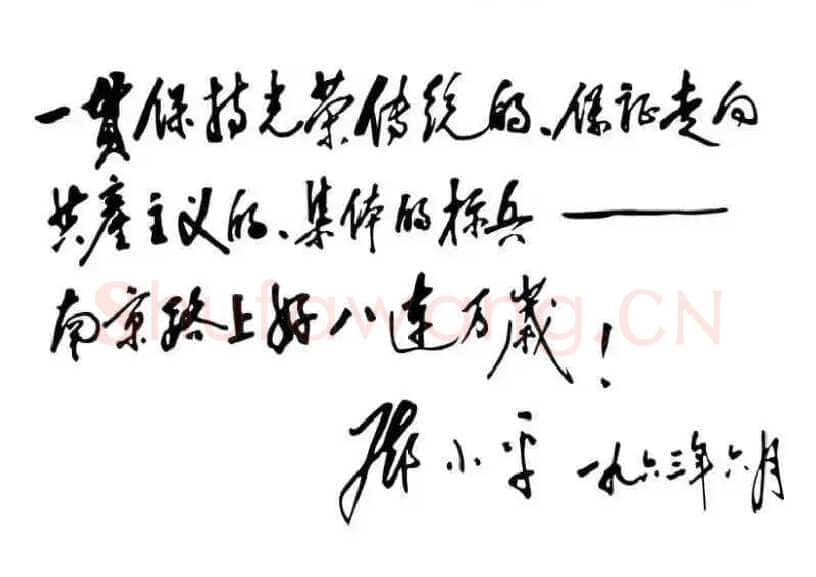 一贯保持光荣传统的、保证走向
共產主义的、集体的标兵——
南京路上好八连万歲！
邓小平 一九六三年六月
Shufawang.CN